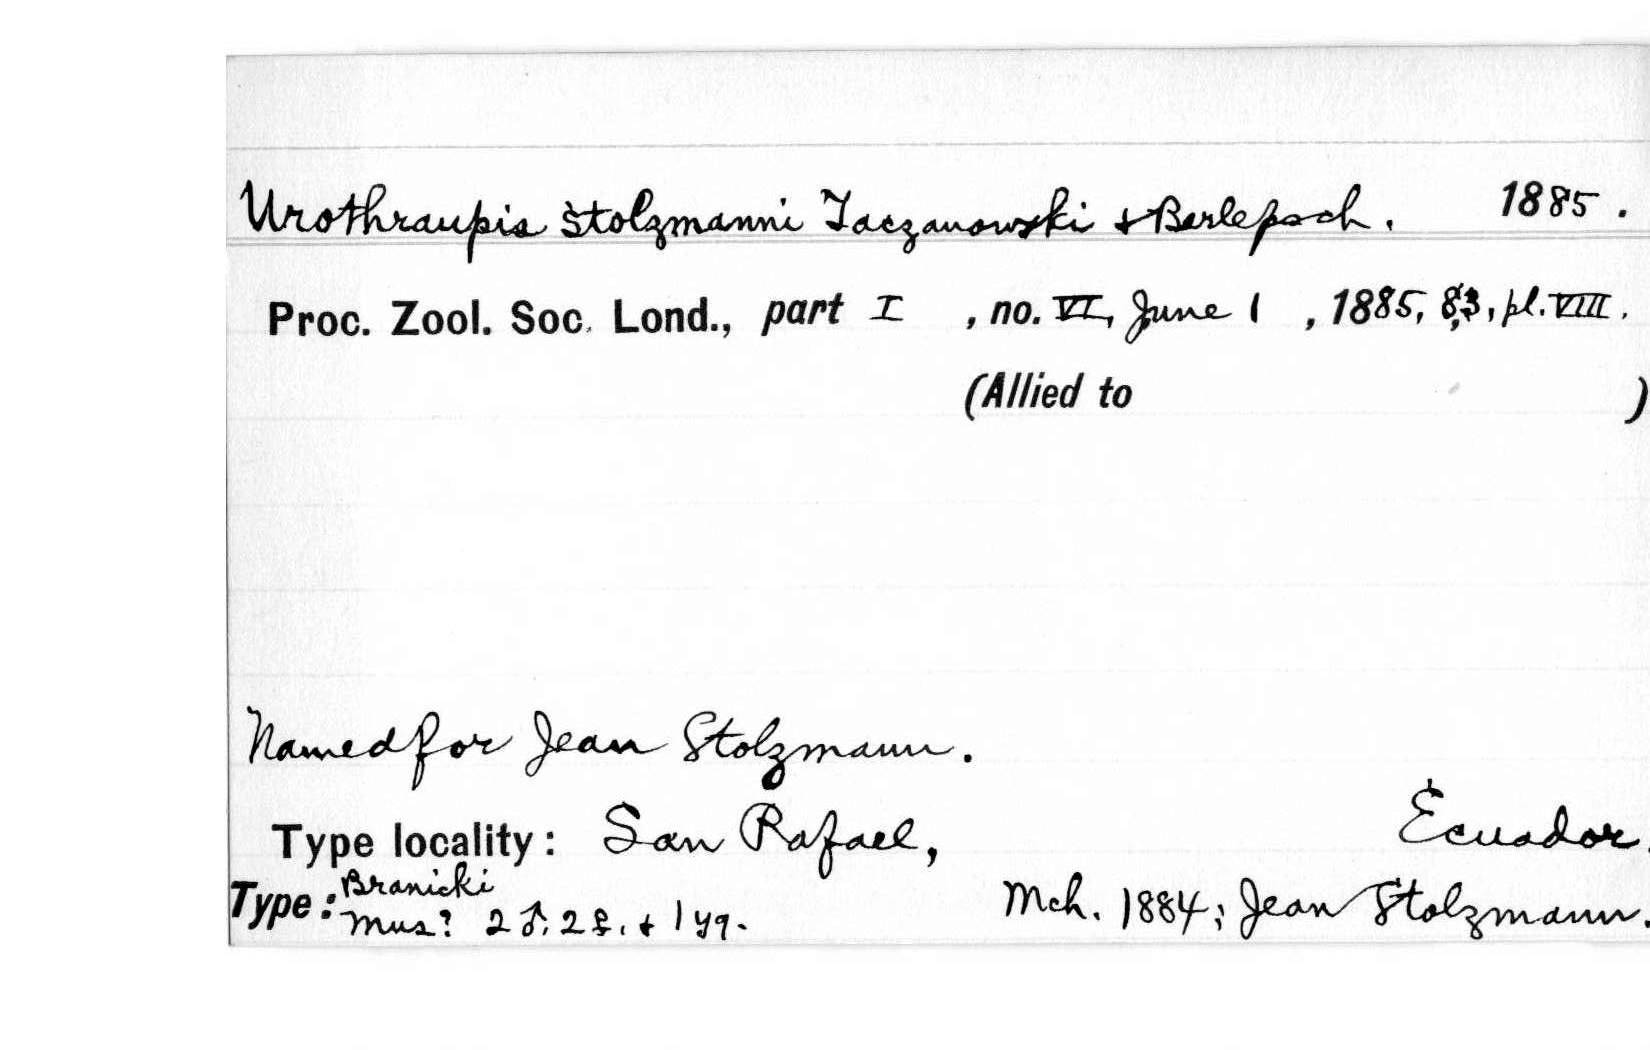 Urothraupis stolzmanni Taczanowski & Berlepsch. 1885.
Proc. Zool. Soc. Lond., part I, no. VI, June 1, 1885, 83, pl. VIII.
(Allied to )
Named for Jean Stolzmann.
Type locality: San Rafael, Ecuador.
Type: Branicki Mus? 2♂, 2♀, & 1 yg. Mch. 1884; Jean Stolzmann.